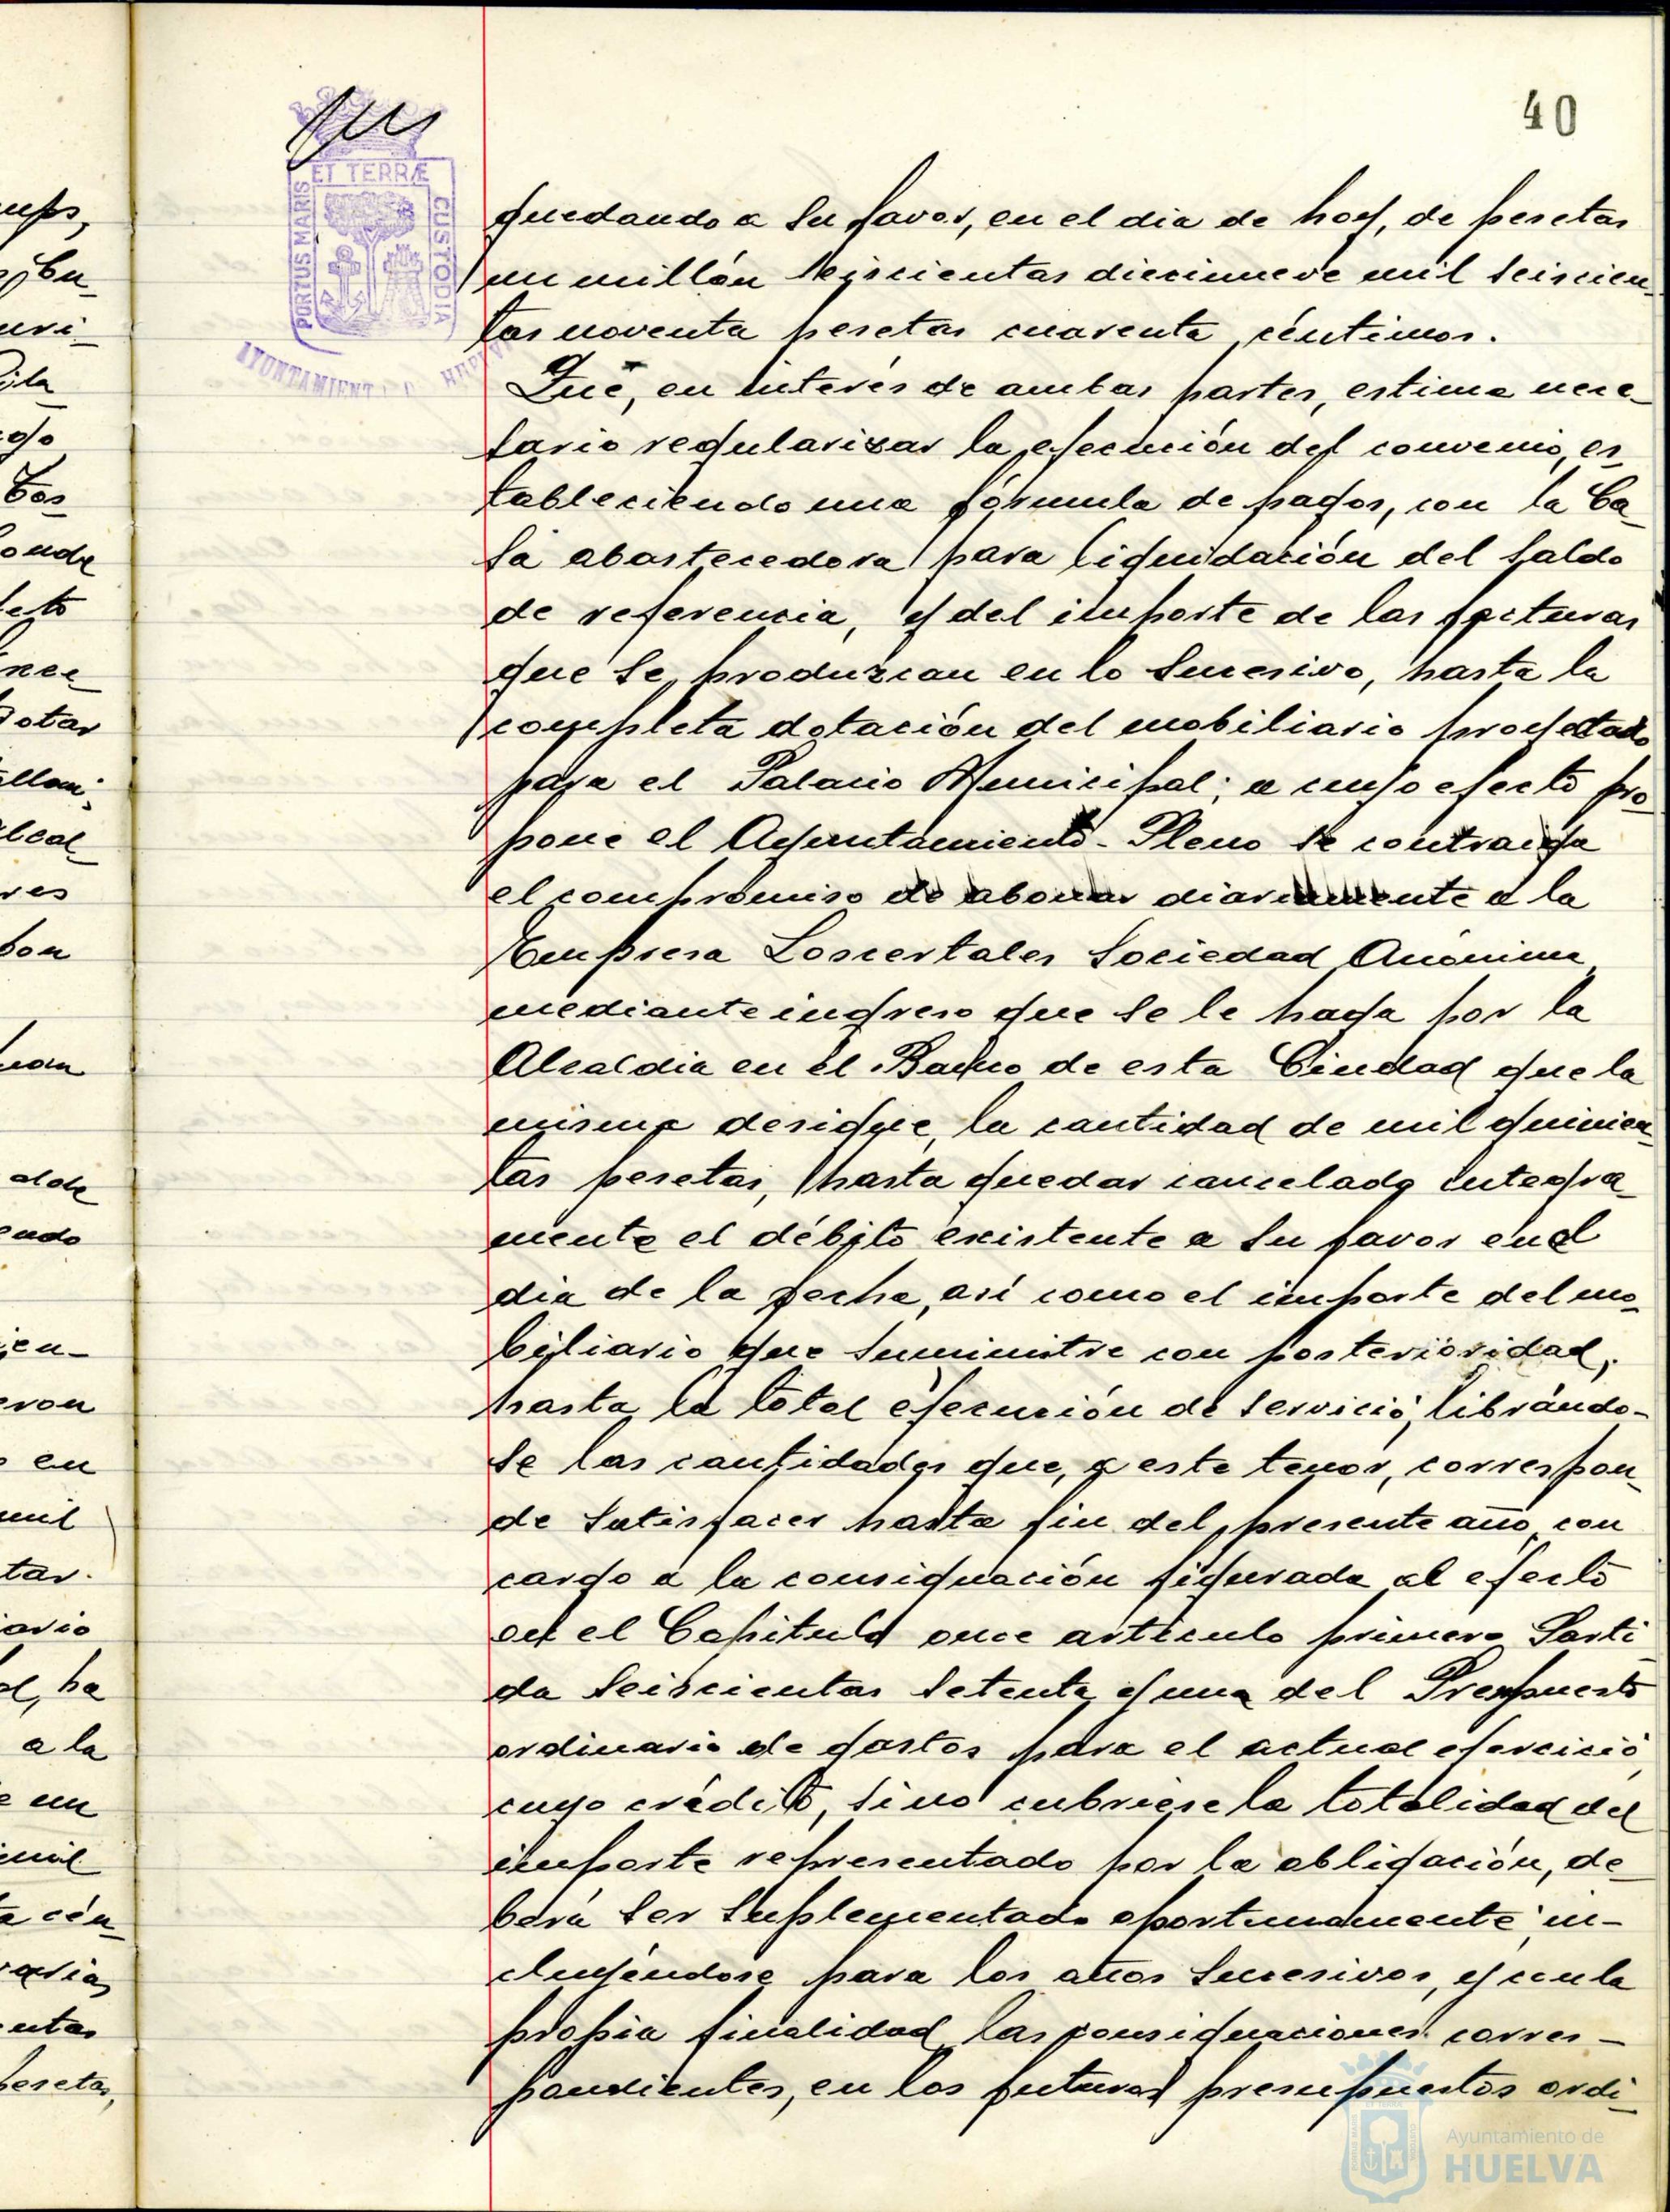 40
PORTUS MARIS ET TERRÆ CUSTODIA
AYUNTAMIENTO
quedando a su favor, en el dia de hoy, de pesetas
un millón seiscientas diecinueve mil seiscien_
tas noventa pesetas cuarenta céntimos.
Que, en interés de ambas partes, estima nece_
sario regularizar la ejecución del convenio, es_
tableciendo una fórmula de pagos, con la Ca_
sa abastecedora para liquidación del saldo
de referencia, y del importe de las facturas
que se produzcan en lo sucesivo, hasta la
completa dotación del mobiliario proyectado
para el Palacio Municipal; a cuyo efecto pro_
pone el Ayuntamiento-Pleno se contraiga
el compromiso de abonar diariamente a la
Empresa Loscertales Sociedad Anónima,
mediante ingreso que se le haga por la
Alcaldia en el Banco de esta Ciudad que la
misma designe, la cantidad de mil quinien_
tas pesetas, hasta quedar cancelado integra_
mente el débito existente a su favor en el
dia de la fecha, así como el importe del mo_
biliario que suministre con posterioridad,
hasta la total ejecución de servicio, librándo-
se las cantidades que, a este tenor, correspon_
de satisfacer hasta fin del presente año, con
cargo a la consignación figurada al efecto
en el Capitulo once articulo primero Parti_
da seiscientas setenta y una del Presupuesto
ordinario de gastos para el actual ejercicio,
cuyo crédito, si no cubriese la totalidad del
importe representado por la obligación, de_
berá ser suplementado oportunamente, in-
cluyéndose para los años sucesivos, y con la
propia finalidad, las consignaciones corres-
pondientes, en los futuros presupuestos ordi_
ri_
go
Tos
otar
res
ron
en
mil
tar.
ario
ha
a la
un
a cén_
entas
pesetas,
Ayuntamiento de
HUELVA